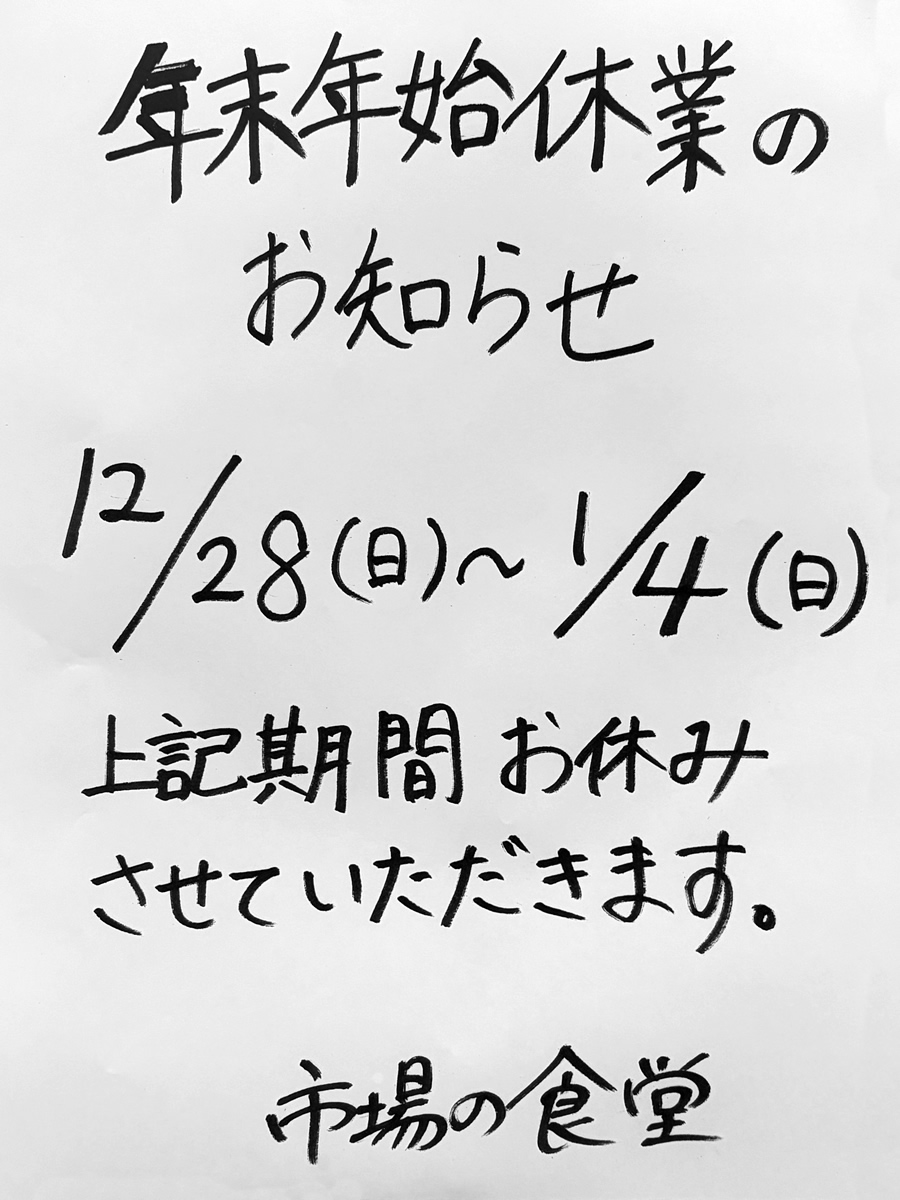 年末年始休業の
お知らせ
12/28(日)〜1/4(日)
上記期間 お休み
させていただきます。
市場の食堂